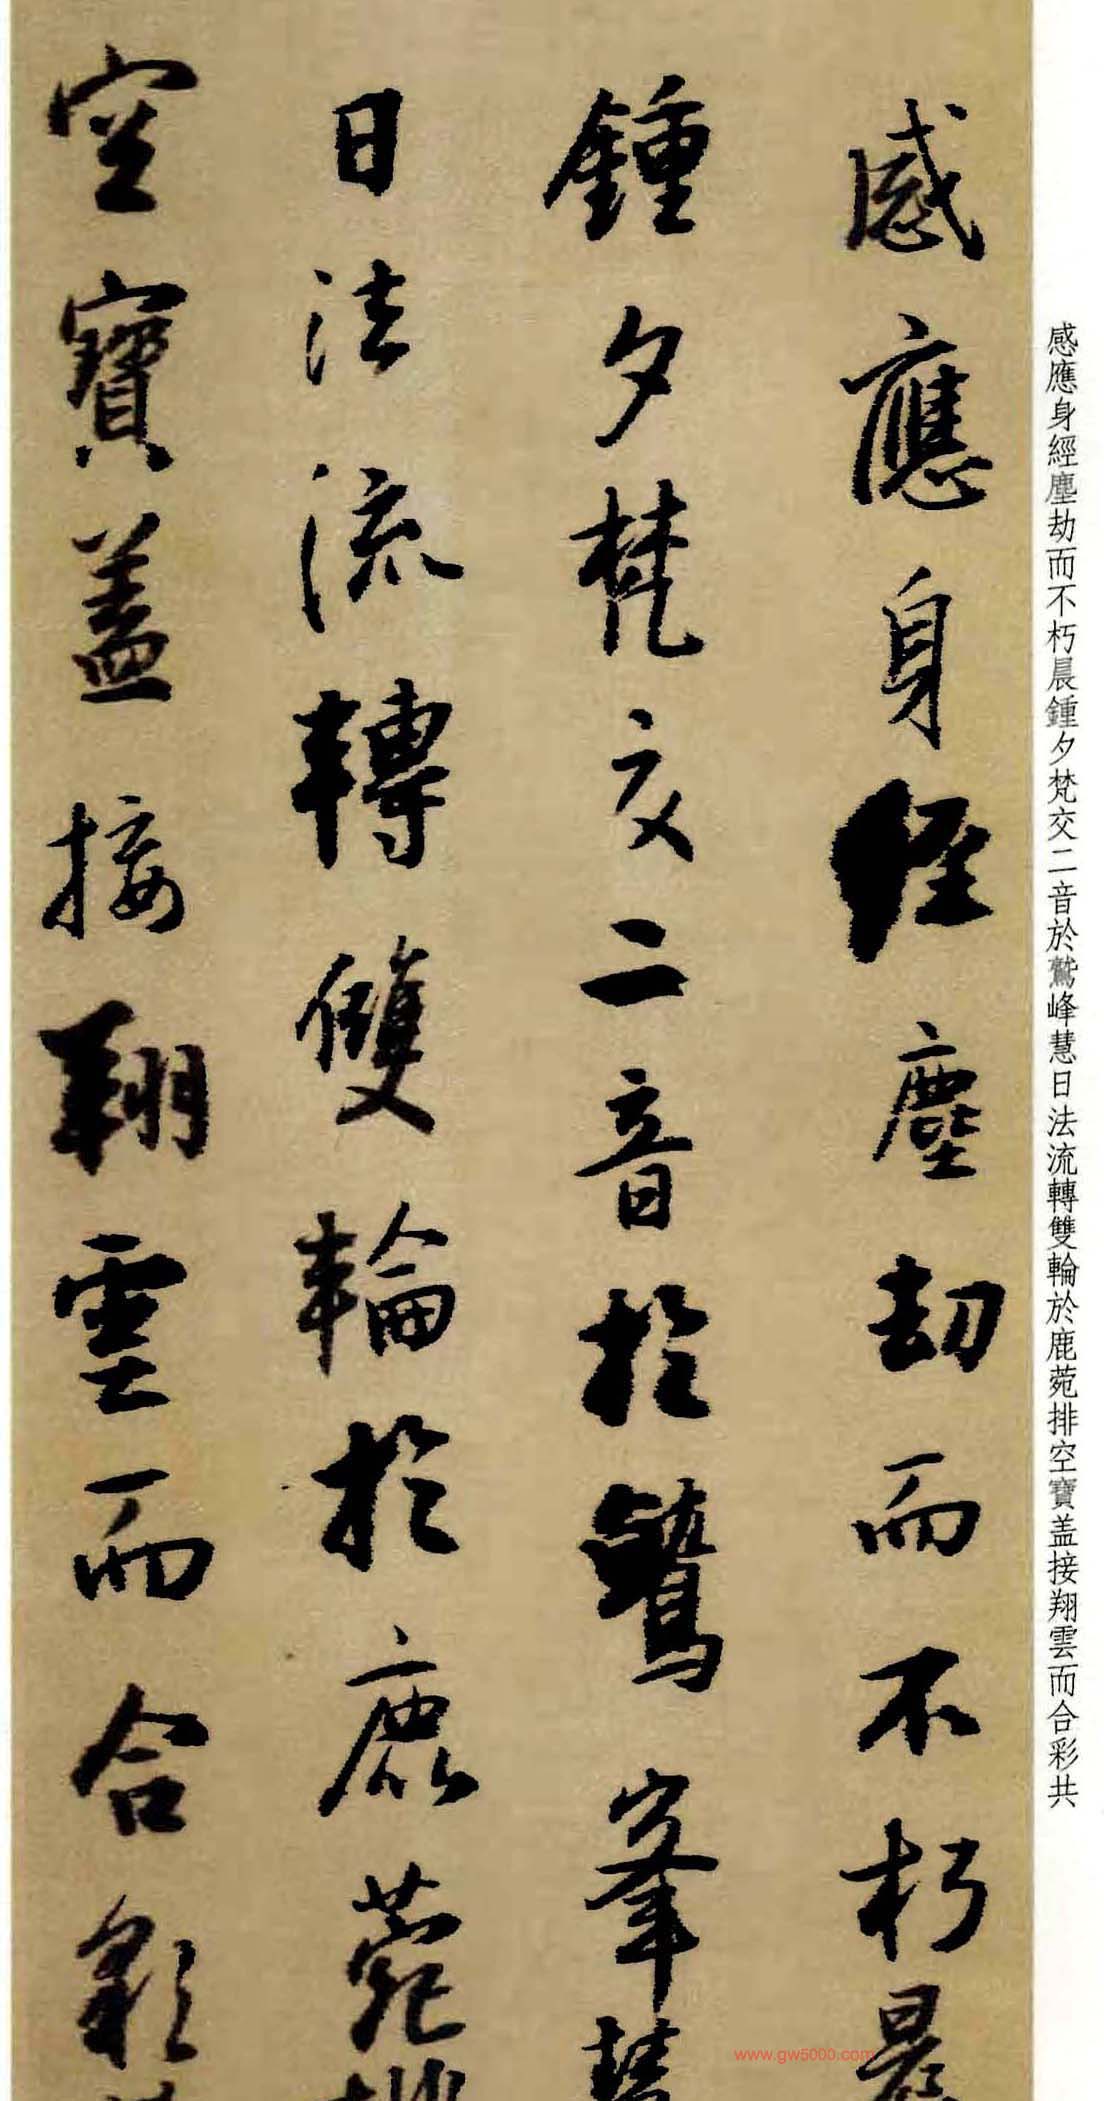 感應身經塵劫而不朽晨
鍾夕梵交二音於鷲峯慧
日法流轉雙輪於鹿菀排
空寶盖接翔雲而合彩共
感應身經塵劫而不朽晨鍾夕梵交二音於鷲峰慧日法流轉雙輪於鹿菀排空寶盖接翔雲而合彩共
www.gw5000.com